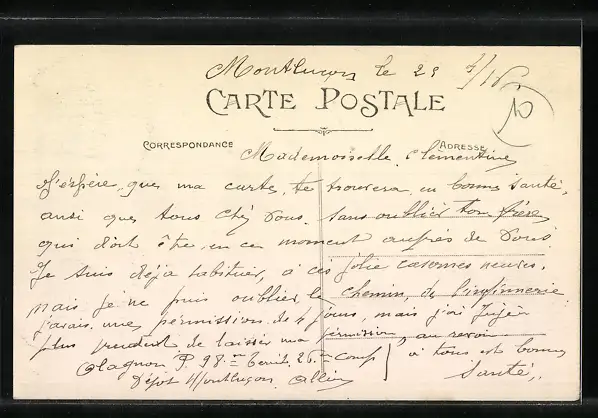 Montluçon le 25 4/16
10
CARTE POSTALE
CORRESPONDANCE
ADRESSE
Mademoiselle Clémentine
J'espère que ma carte te trouvera en bonne santé,
ainsi que tous chez vous. sans oublier ton frère
qui doit être en ce moment auprès de vous.
Je suis déjà habituer, à ces jolie casernes neuves,
mais je ne puis oublier le chemin de l'infirmerie
j'avais une permission de 4 jours, mais j'ai juger
plus prudent de laisser ma permission, au revoir
à tous et bonne
santé.
Olagnon P. 98 me Territ. 26 me comp
Dépôt Montluçon Allier